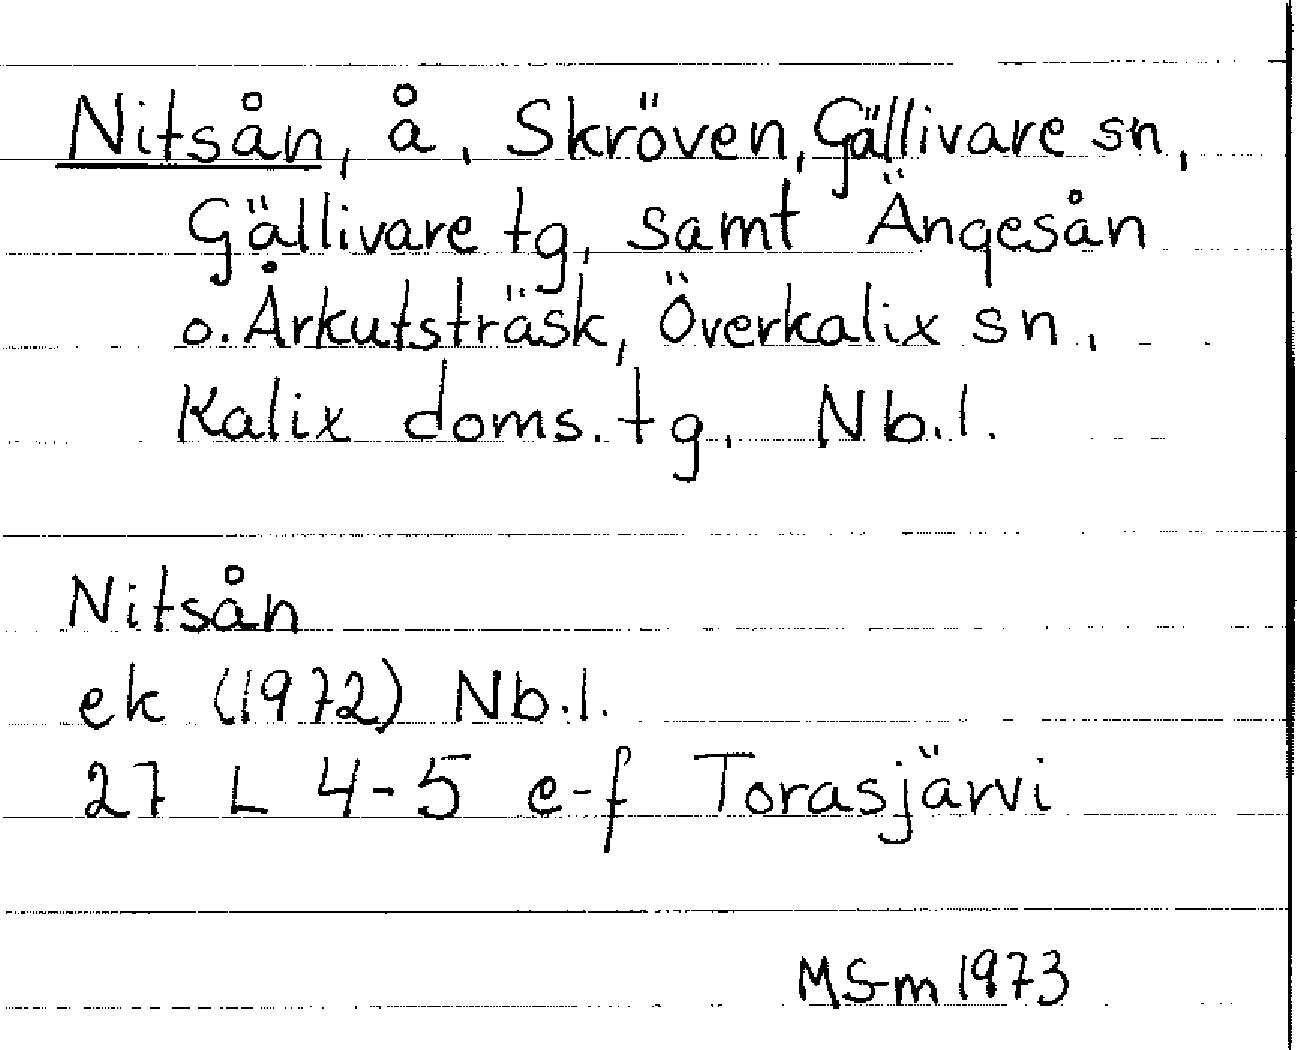 Nitsån, å, Skröven, Gällivare sn,
Gällivare tg, samt Ängesån
o. Årkutsträsk, Överkalix sn,
Kalix doms. tg, Nb.l.
Nitsån
ek (1972) Nb.l.
27 L 4-5 e-f Torasjärvi
MS-m 1973